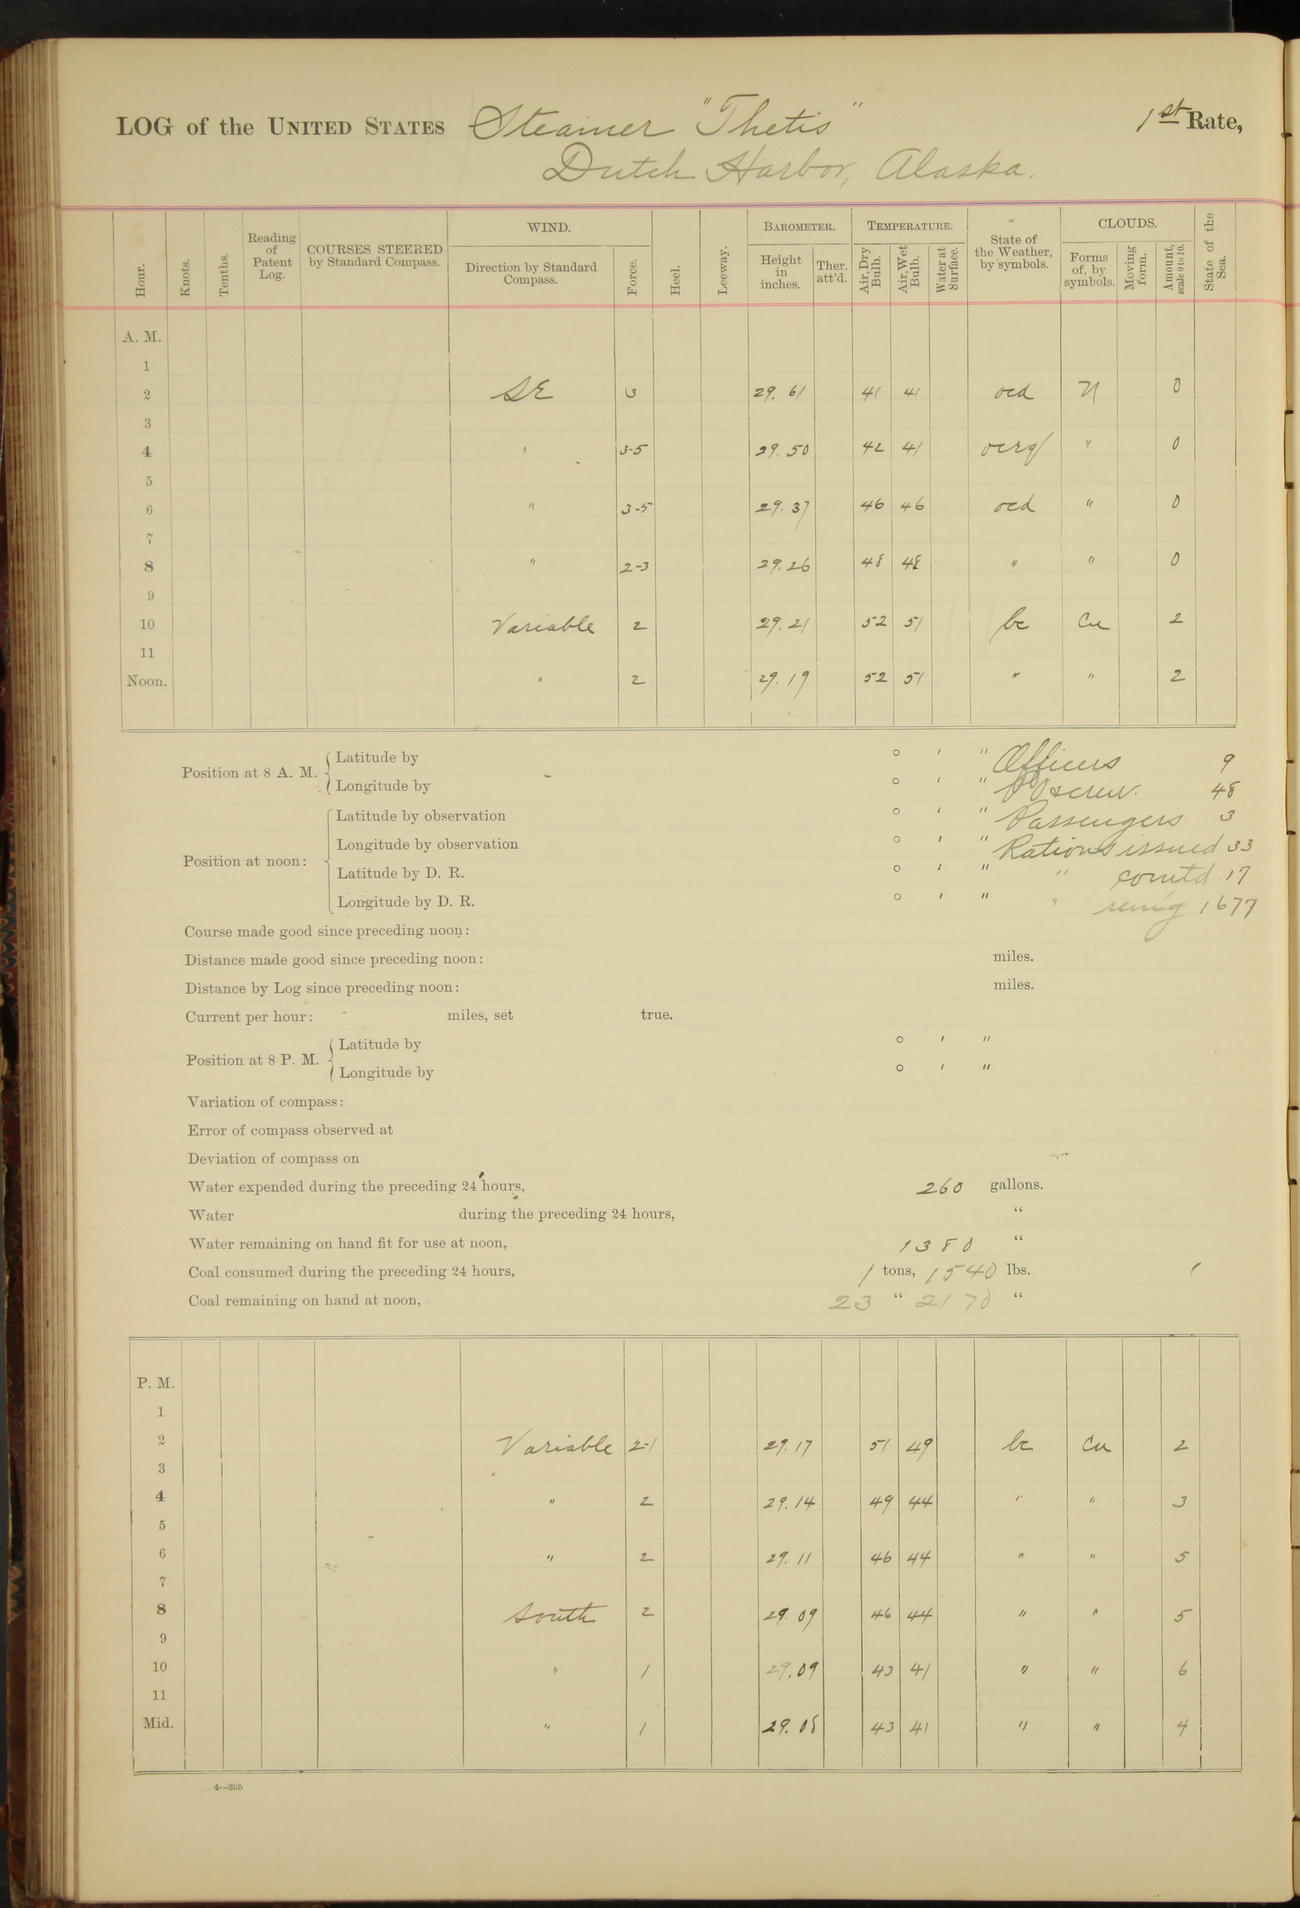 LOG of the UNITED STATES Steamer "Thetis" 1st Rate,
Dutch Harbor, Alaska.
Hour. Knots. Tenths. Reading of Patent Log. COURSES STEERED by Standard Compass. WIND. Direction by Standard Compass. Force. Heel. Leeway. BAROMETER. Height in inches. Ther. att'd. TEMPERATURE. Air, Dry Bulb. Air, Wet Bulb. Water at Surface. State of the Weather, by symbols. CLOUDS. Forms of, by symbols. Moving form. Amount, scale 0 to 10. State of the Sea.
A. M.
1
2 SE 3 29.61 41 41 ocd N 0
3
4 " 3-5 29.50 42 41 ocrq " 0
5
6 " 3-5 29.37 46 46 ocd " 0
7
8 " 2-3 29.26 48 48 " " 0
9
10 Variable 2 29.21 52 51 bc Cu 2
11
Noon. " 2 29.19 52 51 " " 2
Position at 8 A. M. Latitude by ° ' " Officers 9
Longitude by ° ' " crew. 48
Latitude by observation ° ' " Passengers 3
Longitude by observation ° ' " Rations issued 33
Position at noon:
Latitude by D. R. ° ' " " com'td 17
Longitude by D. R. ° ' " " rem'g 1677
Course made good since preceding noon:
Distance made good since preceding noon: miles.
Distance by Log since preceding noon: miles.
Current per hour: miles, set true.
Position at 8 P. M. Latitude by ° ' "
Longitude by ° ' "
Variation of compass:
Error of compass observed at
Deviation of compass on
Water expended during the preceding 24 hours, 260 gallons.
Water during the preceding 24 hours, "
Water remaining on hand fit for use at noon, 1380 "
Coal consumed during the preceding 24 hours, 1 tons, 1540 lbs.
Coal remaining on hand at noon, 23 " 2170 "
P. M.
1
2 Variable 2-1 29.17 51 49 bc Cu 2
3
4 " 2 29.14 49 44 " " 3
5
6 " 2 29.11 46 44 " " 5
7
8 South 2 29.09 46 44 " " 5
9
10 " 1 29.09 43 41 " " 6
11
Mid. " 1 29.08 43 41 " " 4
4--266